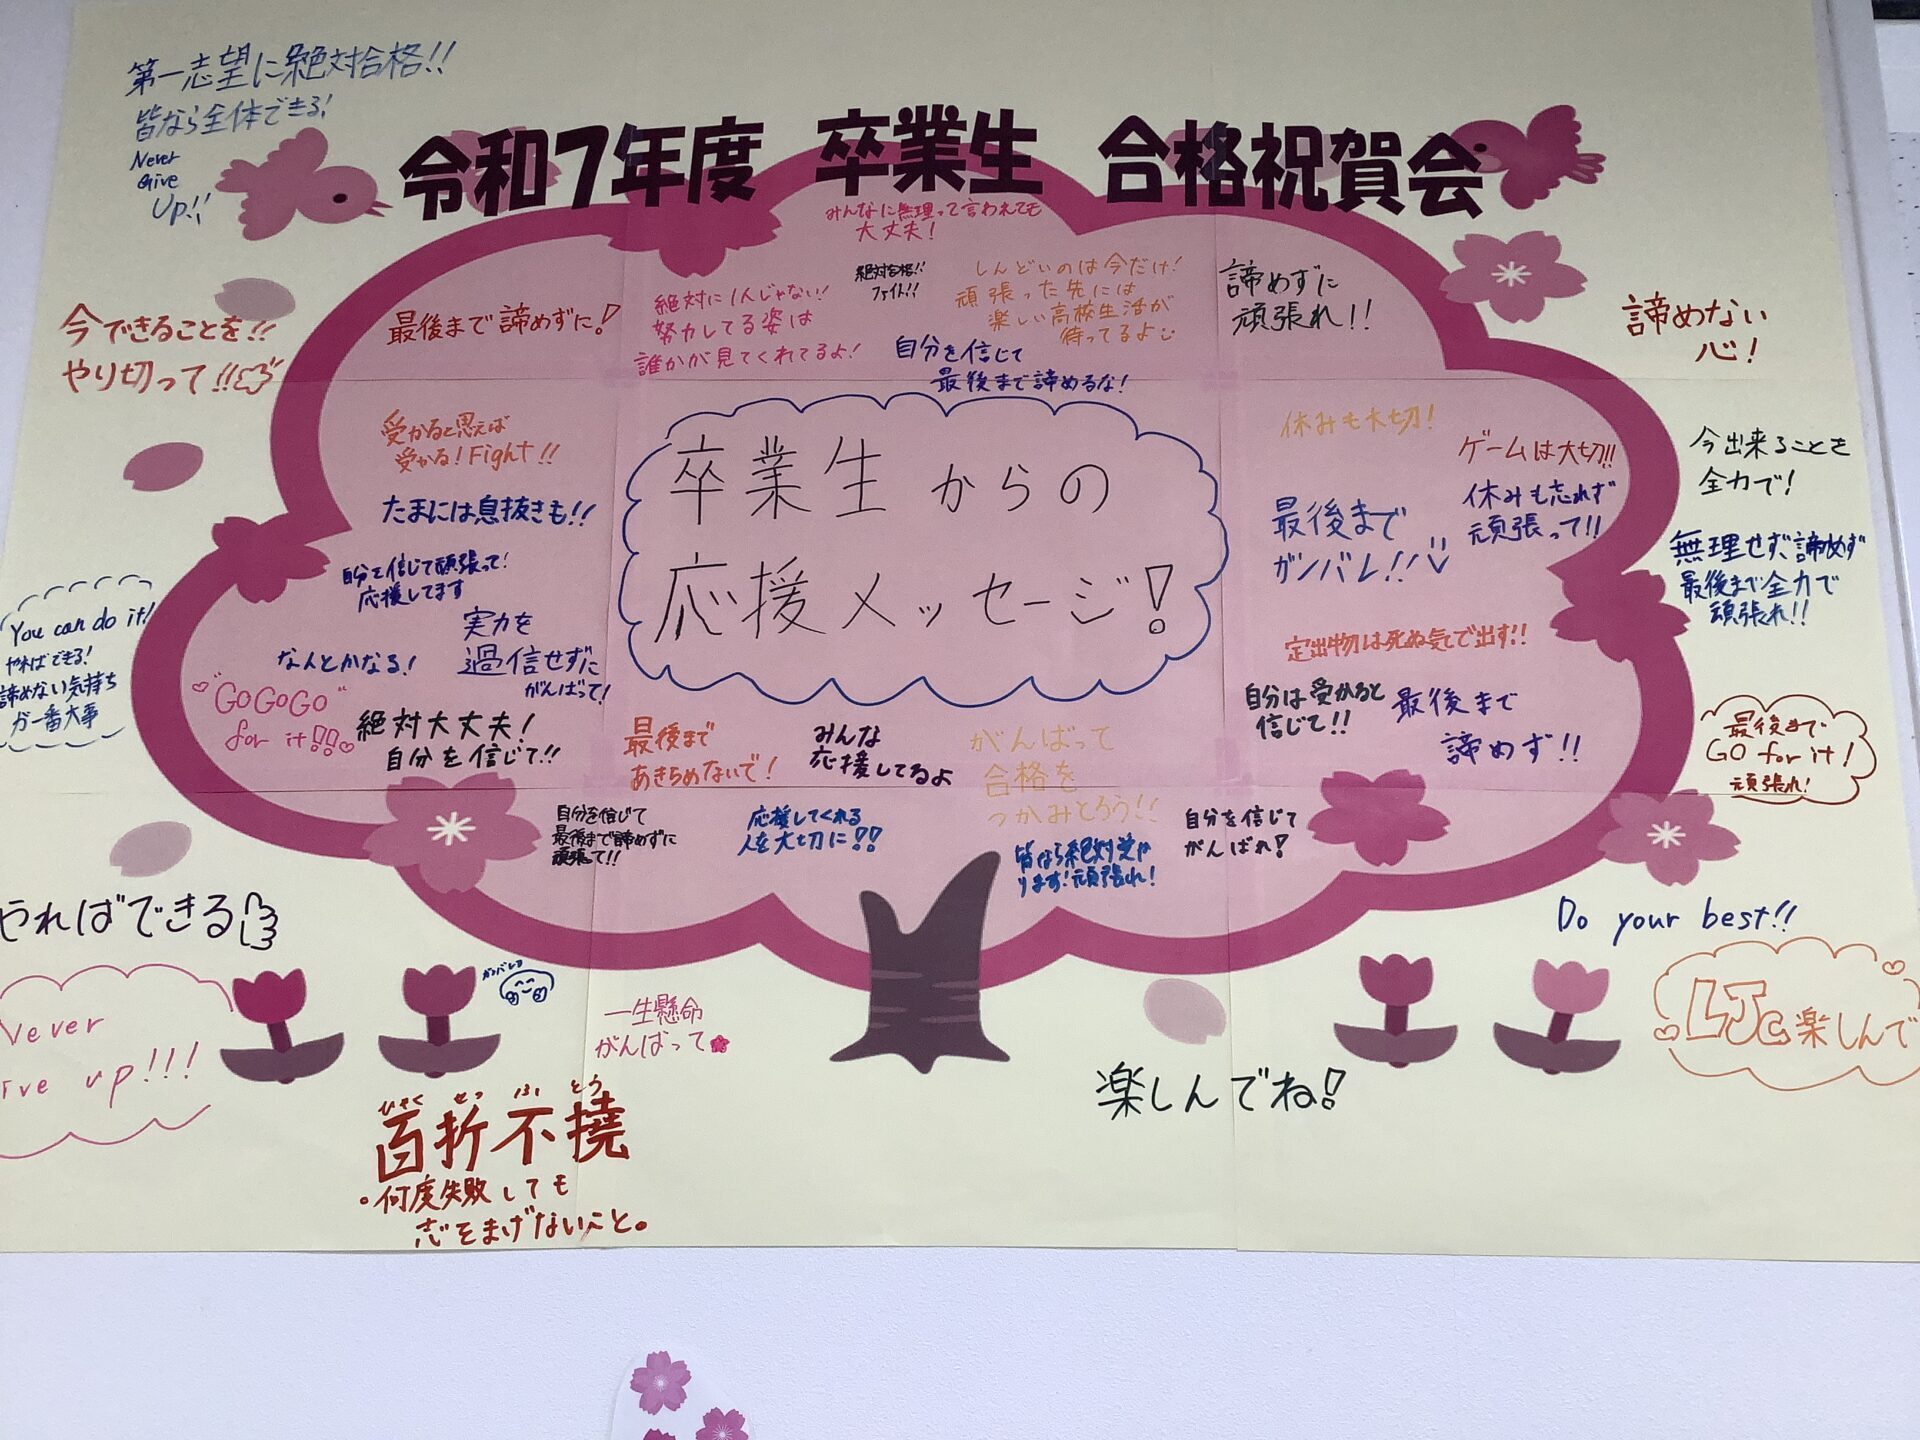 第一志望に絶対合格!!
皆なら全体できる!
Never
Give
Up!!
令和7年度 卒業生 合格祝賀会
みんなに無理って言われても
大丈夫!
絶対合格!!
ファイト!!
しんどいのは今だけ!
頑張った先には
楽しい高校生活が
待ってるよ
諦めずに
頑張れ!!
諦めない
心!
今できることを!!
やり切って!!
最後まで諦めずに!
絶対に1人じゃない!
努力してる姿は
誰かが見てくれてるよ!
自分を信じて
最後まで諦めるな!
受かると思えば
受かる!Fight!!
たまには息抜きも!!
卒業生からの
応援メッセージ!
休みも大切!
ゲームは大切!!
休みも忘れず
頑張って!!
最後まで
ガンバレ!!
今出来ることを
全力で!
無理せず、諦めず
最後まで全力で
頑張れ!!
自分を信じて頑張って!
応援してます
実力を
過信せずに
がんばって!
なんとかなる!
You can do it!
やればできる!
諦めない気持ち
が一番大事
"GOGOGO"
for it!!
絶対大丈夫!
自分を信じて!!
定出物は死ぬ気で出す!!
自分は受かると
信じて!!
最後まで
諦めず!!
最後まで
GO for it!
頑張れ!
最後まで
あきらめないで!
みんな
応援してるよ
がんばって
合格を
つかみとろう!!
自分を信じて
最後まで諦めずに
頑張って!!
応援してくれる
人を大切に!!
皆なら絶対受か
ります!頑張れ!
自分を信じて
がんばれ!
やればできる
Do your best!!
Never
ive up!!!
ガンバレヨ
一生懸命
がんばって
LJK楽しんで
楽しんでね!
ひゃく せつ ふ とう
百折不撓
。何度失敗しても
志をまげないこと。